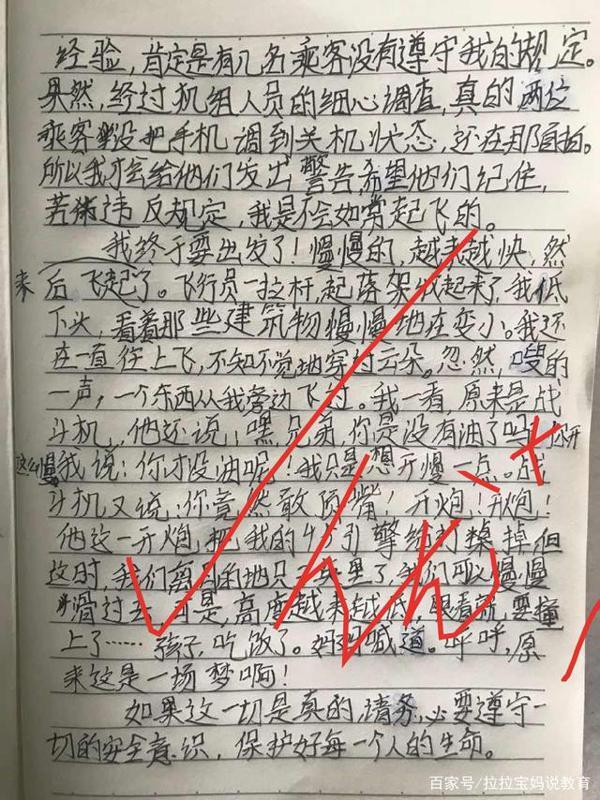 经验,肯定是有几名乘客没有遵守我的规定。
果然,经过机组人员的细心调查,真的两位
乘客没把手机调到关机状态,还在那自拍。
所以我才会给他们发出警告,希望他们记住,
若违反规定,我是不会如常起飞的。
我终于要出发了!慢慢的,越来越快,然
来后飞起了。飞行员一拉杆,起落架收起来了,我低
下头,看着那些建筑物慢慢地在变小。我还
在一直住上飞,不知不觉地穿过云朵。忽然,嗖的
一声,一个东西从我旁边飞过。我一看原来是战
斗机,他还说:嘿兄弟,你是没有油了吗你开
这么慢我说:你才没油呢!我只是想开慢一点。战
斗机又说:你竟然敢顶嘴!开炮!开炮!
他这一开炮,把我的4个引擎给打掉但
这时,我们离目的地只了我们可以慢慢
滑过去,可是,高度越来越低,眼看就要撞
上了……孩子,吃饭了。妈妈喊道。呼呼,原
来这是一场梦啊!
如果这一切是真的,请务必要遵守一
切的安全意识,保护好每一个人的生命。
百家号/拉拉宝妈说教育